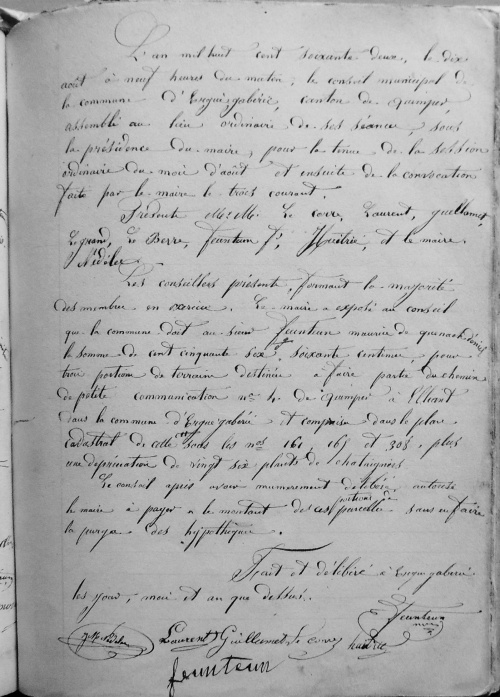 L'an mil huit cent soixante deux, le dix
août à neuf heures du matin, le conseil municipal de
la commune d'Ergué gabéric, canton de quimper,
assemblé au lieu ordinaire de ses séance, sous
la présidence du maire, pour la tenue de la session
ordinaire du mois d'août et ensuite de la convocation
faite par le maire le trois courant.
Présents Le corre, Laurent, guillamet,
Le grand, Le Berre, feunteun fs, Huitric, et le maire
Nédélec.
Les conseillers présents, formant la majorité
des membres en exercice. Le maire a exposé au conseil
que la commune doit au sieur feunteun maurice de
la somme de cent cinquante six f, soixante centimes, pour
trois portions de terrain destinées à faire partie du chemin
de petite communication no 4 de quimper à Elliant
dans la commune d'Ergué gabéric et comprise dans le plan
cadastral de cette sous les nos 161, 165 et 303, plus
une dépréciation de vingt six plants de chataigners
Le conseil après avoir murement délibéré, autorise
le maire à payer le montant des ces portions de parcelles sans en faire
la purge des hypothèques.
Fait et délibéré à Ergué gabéric
les jour, mois et an que dessus.
feunteun
Laurent Guillamet Le corre huitric
feunteun